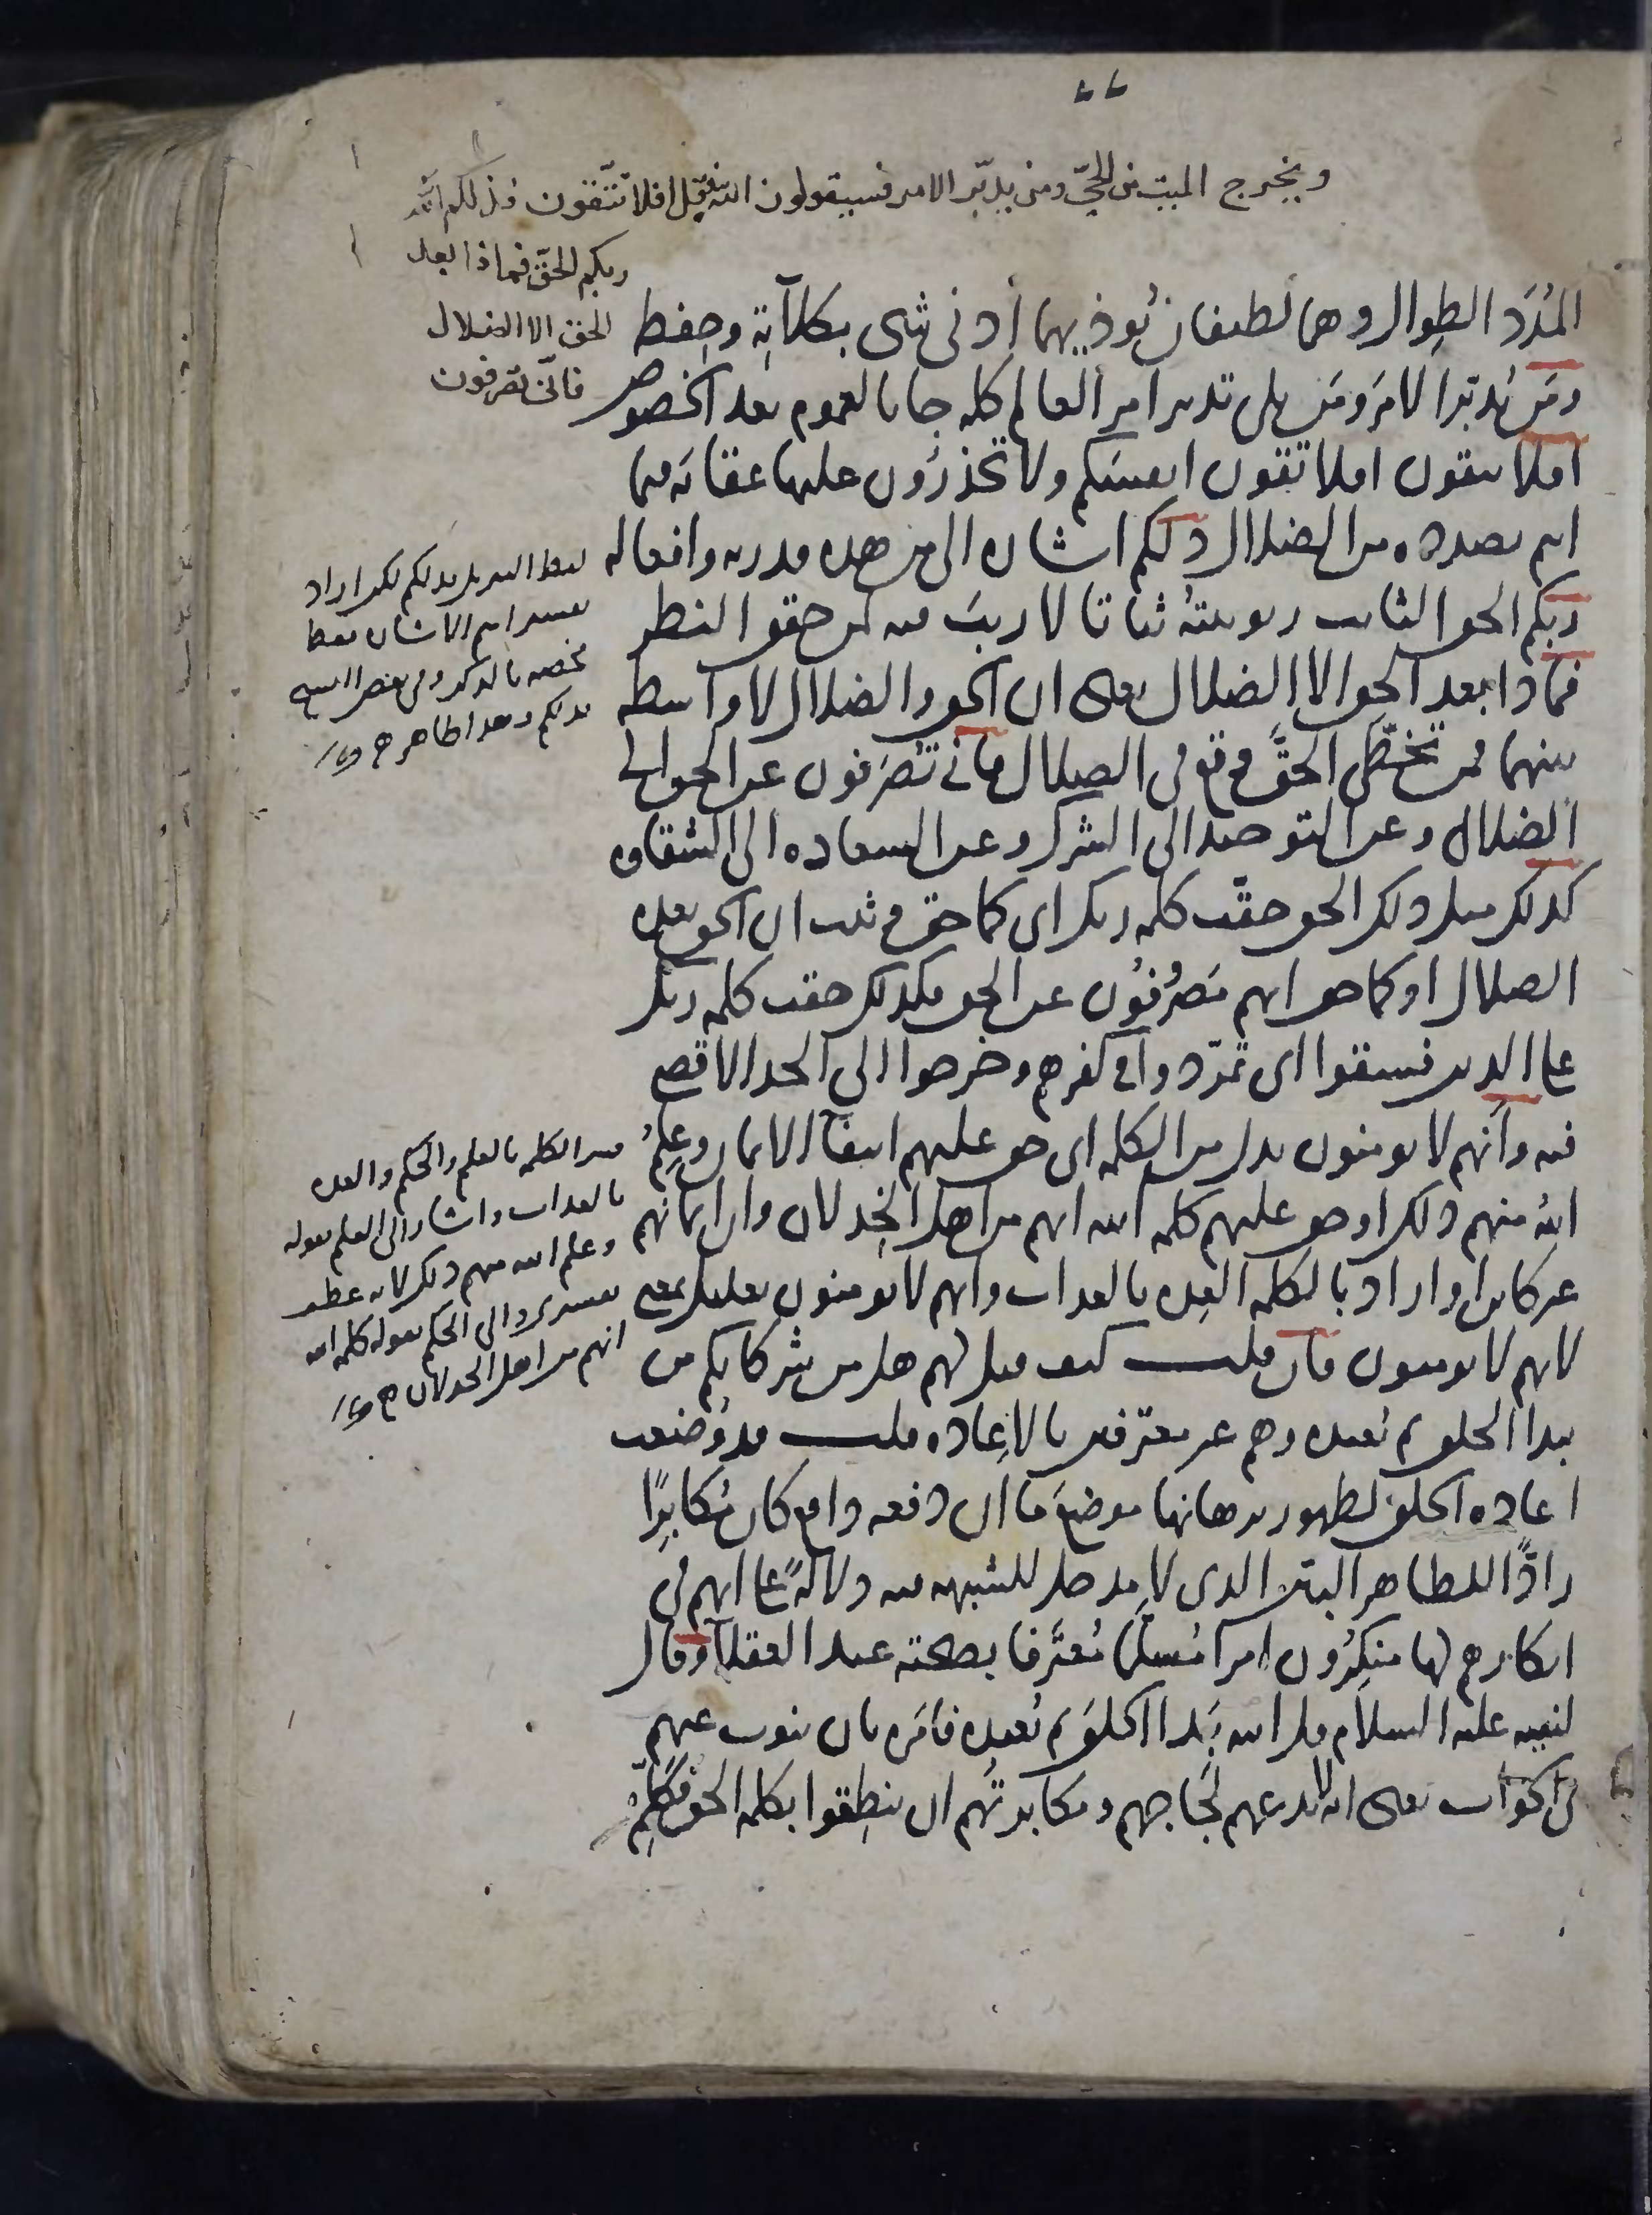 ويخرج الميت من الحي ومن يدبّر الامر فسيقولون الله فقل افلا تتّقون فذلكم الله
ربكم الحقّ فماذا بعد
الحق الا الضلال
فانّى تصرفون
المُدَد الطِوال وهما لطيفان يُوذيهما أدنى شى بكلآيَةِ وحِفظ
ومَن يُدبّر الامرَ ومَن يلى تدبير امر العالم كله جا بالعموم بعد الخصوص
افلا تتقون افلا تقون انفسَكم ولا تحذرُون عليها عقابَه فيما
انتم بصدده من الضلال ذلكم اشاره الى من هذه قدرته وافعاله
ربكم الحق الثابت ربوبيتهُ ثباتا لا ريبَ فيه لمن حقق النظر
فماذا بعد الحق الا الضلال يعنى ان الحق والضلال لا واسطه
بينهما فمن تخطّى الحقَّ وقع فى الضلال فانى تُصرَفون عن الحق الى
الضلال وعن التوحيد الى الشرك وعن السعاده الى الشقاوه
كذلك مثل ذلك الحق حقّت كلمه ربك اى كما حق وثبت ان الحق بعده
الضلال او كما حق انهم مَصرُوفُون عن الحق فكذلك حقت كلمه ربك
على الذين فسقوا اى تمرّدوا فى كفرهم وخرجوا الى الحد الاقصى
فيه وأنهم لا يومنون بدل من الكلمه اى حق عليهم انتفآ الايمان وعِلمُ
اللهُ منهم ذلك او حق عليهم كلمه الله انهم من اهل الخِذلان وان ايمانهم
غير كاين او اراد بالكلمه العِده بالعذاب وانهم لا يومنون تعليل بمعنى
لانهم لا يومنون فان قلت كيف قيل لهم هل من شركايكم من
يبدا الخلق ثم يُعيده وهم غير معترفين بالاِعاده قلت قد وُضعت
اعاده الخلق لظهور برهانها موضعَ ما ان دفعه دافع كان مُكابِرًا
رادًّا للظاهر البيّن الذى لا مدخل للشبهه فيه دلالهً على انهم فى
انكارهم لها منكِرُون امرا مُسلّما مُعترَفا بصحته عند العقلآ وقال
لنبيه عليه السلام قل الله يَبدا الخلقَ ثم يُعيده فامَره بان ينوب عنهم
فى الجواب يعنى انه لا يدعهم لَجَاجهم ومكابرتُهم ان ينطِقوا بكلمه الحق فكَلِّم
لفظ التنزيل فذلكم لكن اراد
تفسير اسم الاشاره فقط
فخصه بالذكر وفى بعض النسخ
فذلكم وهذا ظاهر
فسر الكلمه بالعلم والحكم والعده
بالعذاب واشار الى العلم بقوله
وعلم الله منهم ذلك لانه عطف
تفسيرى والى الحكم بقوله كلمه الله
انهم من اهل الخذلان